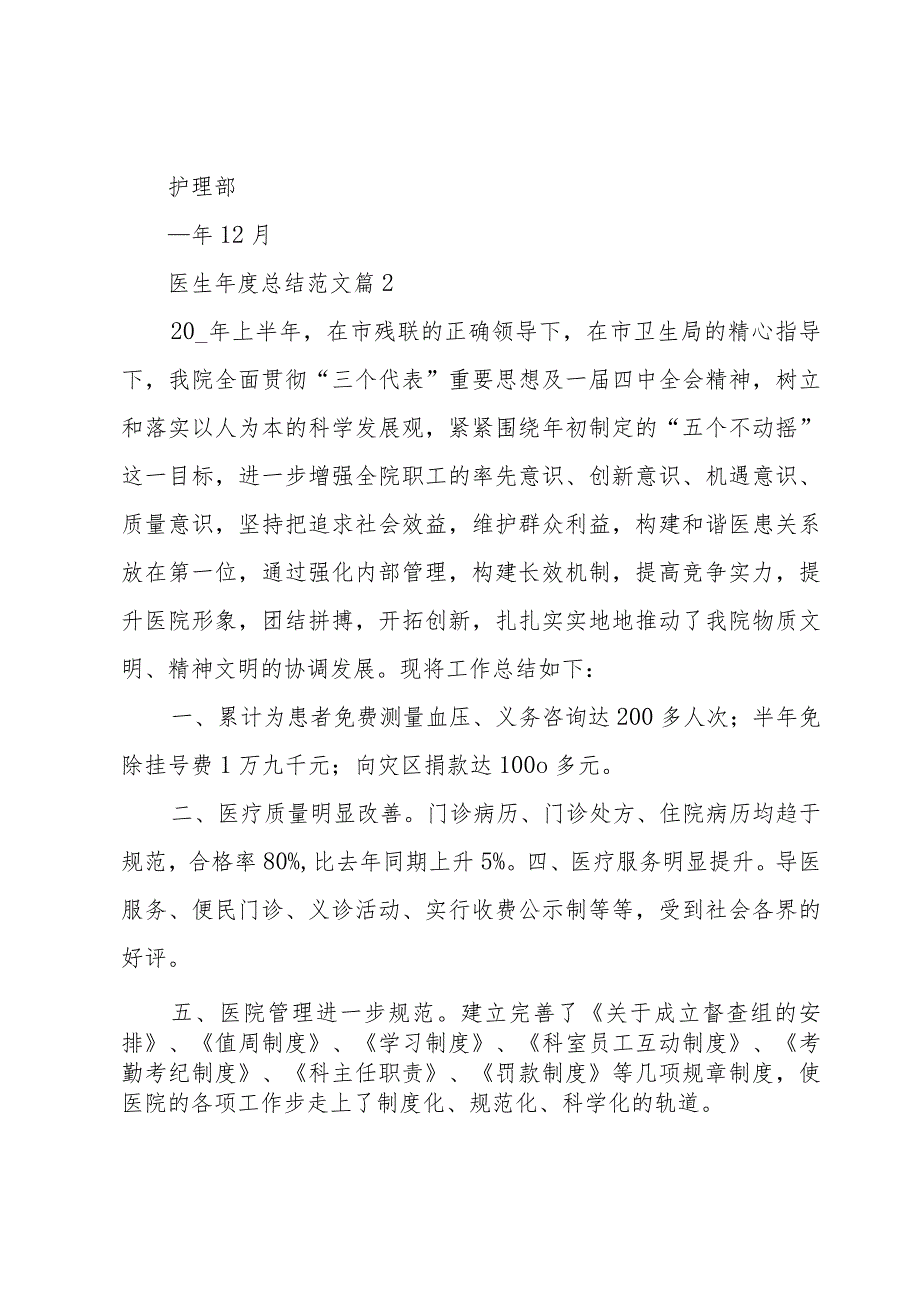 护理部
—年 12 月
医生年度总结范文篇 2
20_年上半年，在市残联的正确领导下，在市卫生局的精心指导
下，我院全面贯彻“三个代表”重要思想及一届四中全会精神，树立
和落实以人为本的科学发展观，紧紧围绕年初制定的“五个不动摇”
这一目标，进一步增强全院职工的率先意识、创新意识、机遇意识、
质量意识，坚持把追求社会效益，维护群众利益，构建和谐医患关系
放在第一位，通过强化内部管理，构建长效机制，提高竞争实力，提
升医院形象，团结拼搏，开拓创新，扎扎实实地地推动了我院物质文
明、精神文明的协调发展。现将工作总结如下：
一、累计为患者免费测量血压、义务咨询达 200 多人次；半年免
除挂号费 1 万九千元；向灾区捐款达 100o 多元。
二、医疗质量明显改善。门诊病历、门诊处方、住院病历均趋于
规范，合格率 80%，比去年同期上升 5%。四、医疗服务明显提升。导医
服务、便民门诊、义诊活动、实行收费公示制等等，受到社会各界的
好评。
五、医院管理进一步规范。建立完善了《关于成立督查组的安
排》、《值周制度》、《学习制度》、《科室员工互动制度》、《考
勤考纪制度》、《科主任职责》、《罚款制度》等几项规章制度，使
医院的各项工作步走上了制度化、规范化、科学化的轨道。